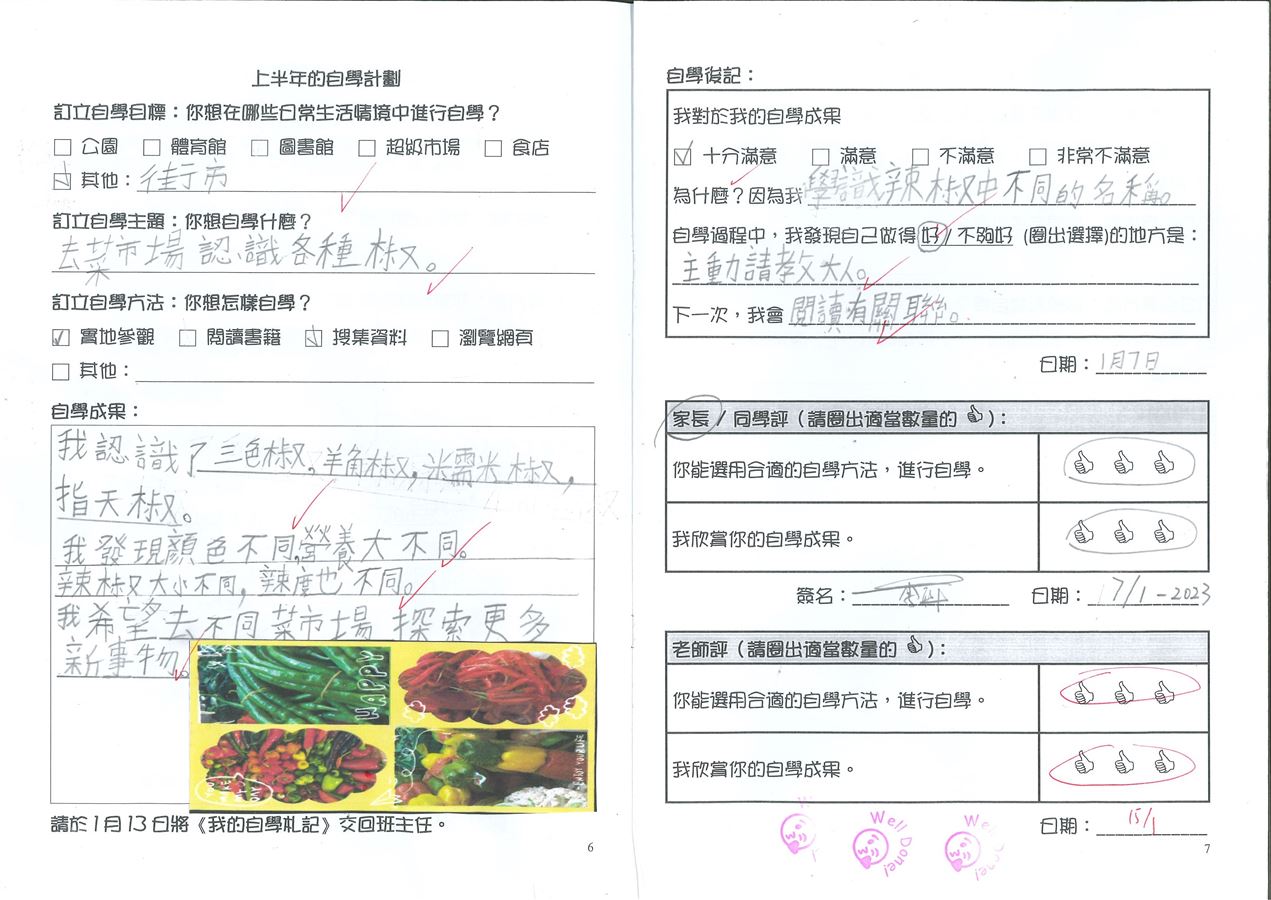 上半年的自學計劃
訂立自學目標：你想在哪些日常生活情境中進行自學？
□ 公園 □ 體育館 □ 圖書館 □ 超級市場 □ 食店
☑ 其他：街市
訂立自學主題：你想自學什麼？
去菜市場認識各種椒。
訂立自學方法：你想怎樣自學？
☑ 實地參觀 □ 閱讀書籍 ☑ 搜集資料 □ 瀏覽網頁
□ 其他：
自學成果：
我認識了三色椒，羊角椒，米需米椒，
指天椒。
我發現顏色不同，營養大不同。
辣椒又大小不同，辣度也不同。
我希望去不同菜市場探索更多
新事物。
HAPPY
ENJOY YOUR LIFE
請於1月13日將《我的自學札記》交回班主任。
6
自學後記：
我對於我的自學成果
☑ 十分滿意 □ 滿意 □ 不滿意 □ 非常不滿意
為什麼？因為我學識辣椒中不同的名稱。
自學過程中，我發現自己做得好/不夠好 (圈出選擇)的地方是：
主動請教大人。
下一次，我會閱讀有關聯。
日期：1月7日
家長 / 同學評（請圈出適當數量的 👍）：
你能選用合適的自學方法，進行自學。 👍 👍 👍
我欣賞你的自學成果。 👍 👍 👍
簽名： 日期：17/1-2023
老師評（請圈出適當數量的 👍）：
你能選用合適的自學方法，進行自學。 👍 👍 👍
我欣賞你的自學成果。 👍 👍 👍
日期：15/1
Well Done!
Well Done!
7